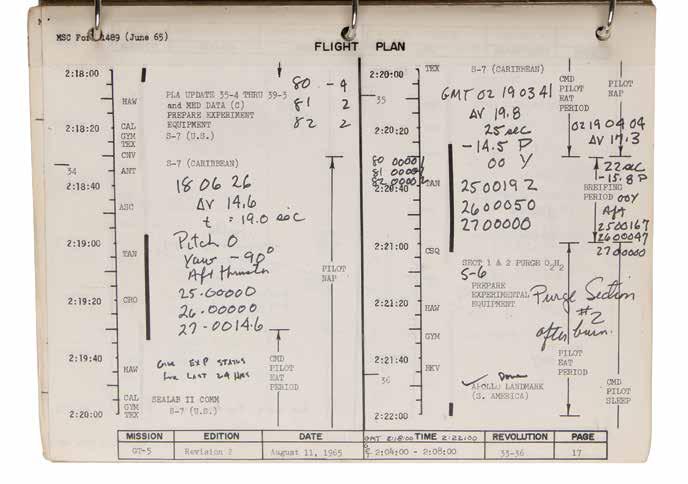 MSC Form 1489 (June 65)
FLIGHT PLAN
2:18:00
HAW
PLA UPDATE 35-4 THRU 39-3
and MED DATA (C)
PREPARE EXPERIMENT
EQUIPMENT
S-7 (U.S.)
80 - 4
81 2
82 2
2:18:20
CAL
GYM
TEX
CNV
34
ANT
S-7 (CARIBBEAN)
2:18:40
ASC
18 06 26
ΔV 14.6
t = 19.0 sec
2:19:00
TAN
Pitch 0
Yaw -90°
Aft thruster
PILOT
NAP
2:19:20
CRO
25-00000
26-00000
27-00146
2:19:40
HAW
Give EXP STATUS
for LAST 24 HRS
CMD
PILOT
EAT
PERIOD
2:20:00
CAL
GYM
TEX
SEALAB II COMM
S-7 (U.S.)
2:20:00
TEX
S-7 (CARIBBEAN)
CMD
PILOT
EAT
PERIOD
PILOT
NAP
35
GMT 02 19 03 41
ΔV 19.8
25 sec
-14.5 P
00 Y
02 19 04 04
ΔV 17.3
2:20:20
80 00001
81 00002
82 00002
2:20:40
TAN
2500192
2600050
2700000
22 sec
-15.8 P
BREIFING
PERIOD
00Y
Aft
2500167
2600047
2700000
2:21:00
CSQ
SECT 1 & 2 PURGE O2H2
S-6
PREPARE
EXPERIMENTAL
EQUIPMENT
Purge Section
#2
after burn.
2:21:20
HAW
GYM
PILOT
EAT
PERIOD
2:21:40
RKV
36
✓ Done
APOLLO LANDMARK
(S. AMERICA)
CMD
PILOT
SLEEP
2:22:00
MISSION EDITION DATE GMT 2:18:00 TIME 2:22:00 REVOLUTION PAGE
GT-5 Revision 2 August 11, 1965 2:04:00 - 2:08:00 33-36 17